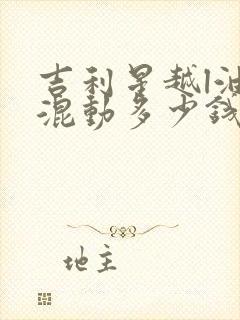 吉利星越l油
混動多少錢
地主